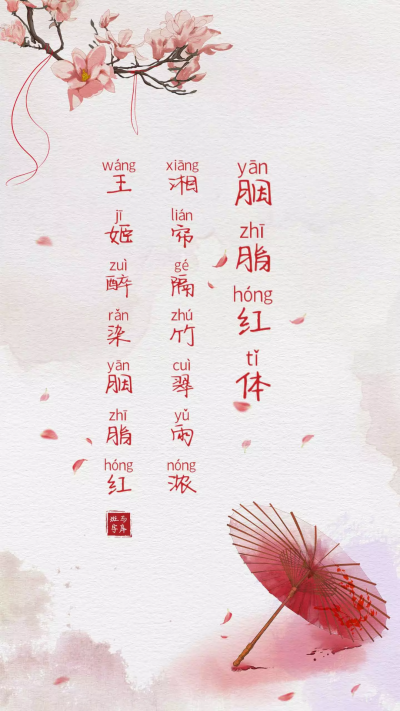 yān zhī hóng tǐ
胭脂红体
xiāng lián gé zhú cuì yǔ nóng
湘帘隔竹翠雨浓
wáng jī zuì rǎn yān zhī hóng
王姬醉染胭脂红